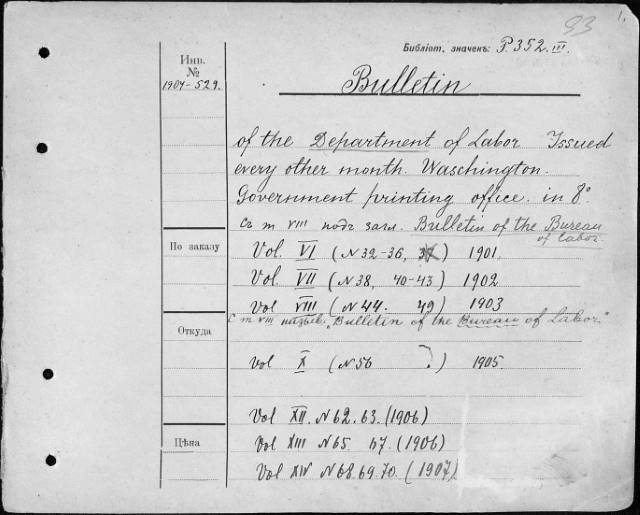 93 1.
Библіот. значенъ: P. 352. III.
Инв.
№
1907-529.
Bulletin
of the Department of Labor Issued
every other month. Waschington.
Government printing office. in 8°
Съ т. VIII подъ загл. Bulletin of the Bureau of Labor.
По заказу
Vol. VI (N 32-36, 37) 1901.
Vol. VII (N 38, 40-43) 1902
Vol VIII (N 44. 49) 1903
С т VIII назыв. „Bulletin of the Bureau of Labor."
Откуда
Vol X (N 56 ?) 1905.
Vol XII. N 62. 63. (1906)
Цѣна
Vol XIII N 65. 67. (1906)
Vol XIV N 68. 69. 70. (1907)